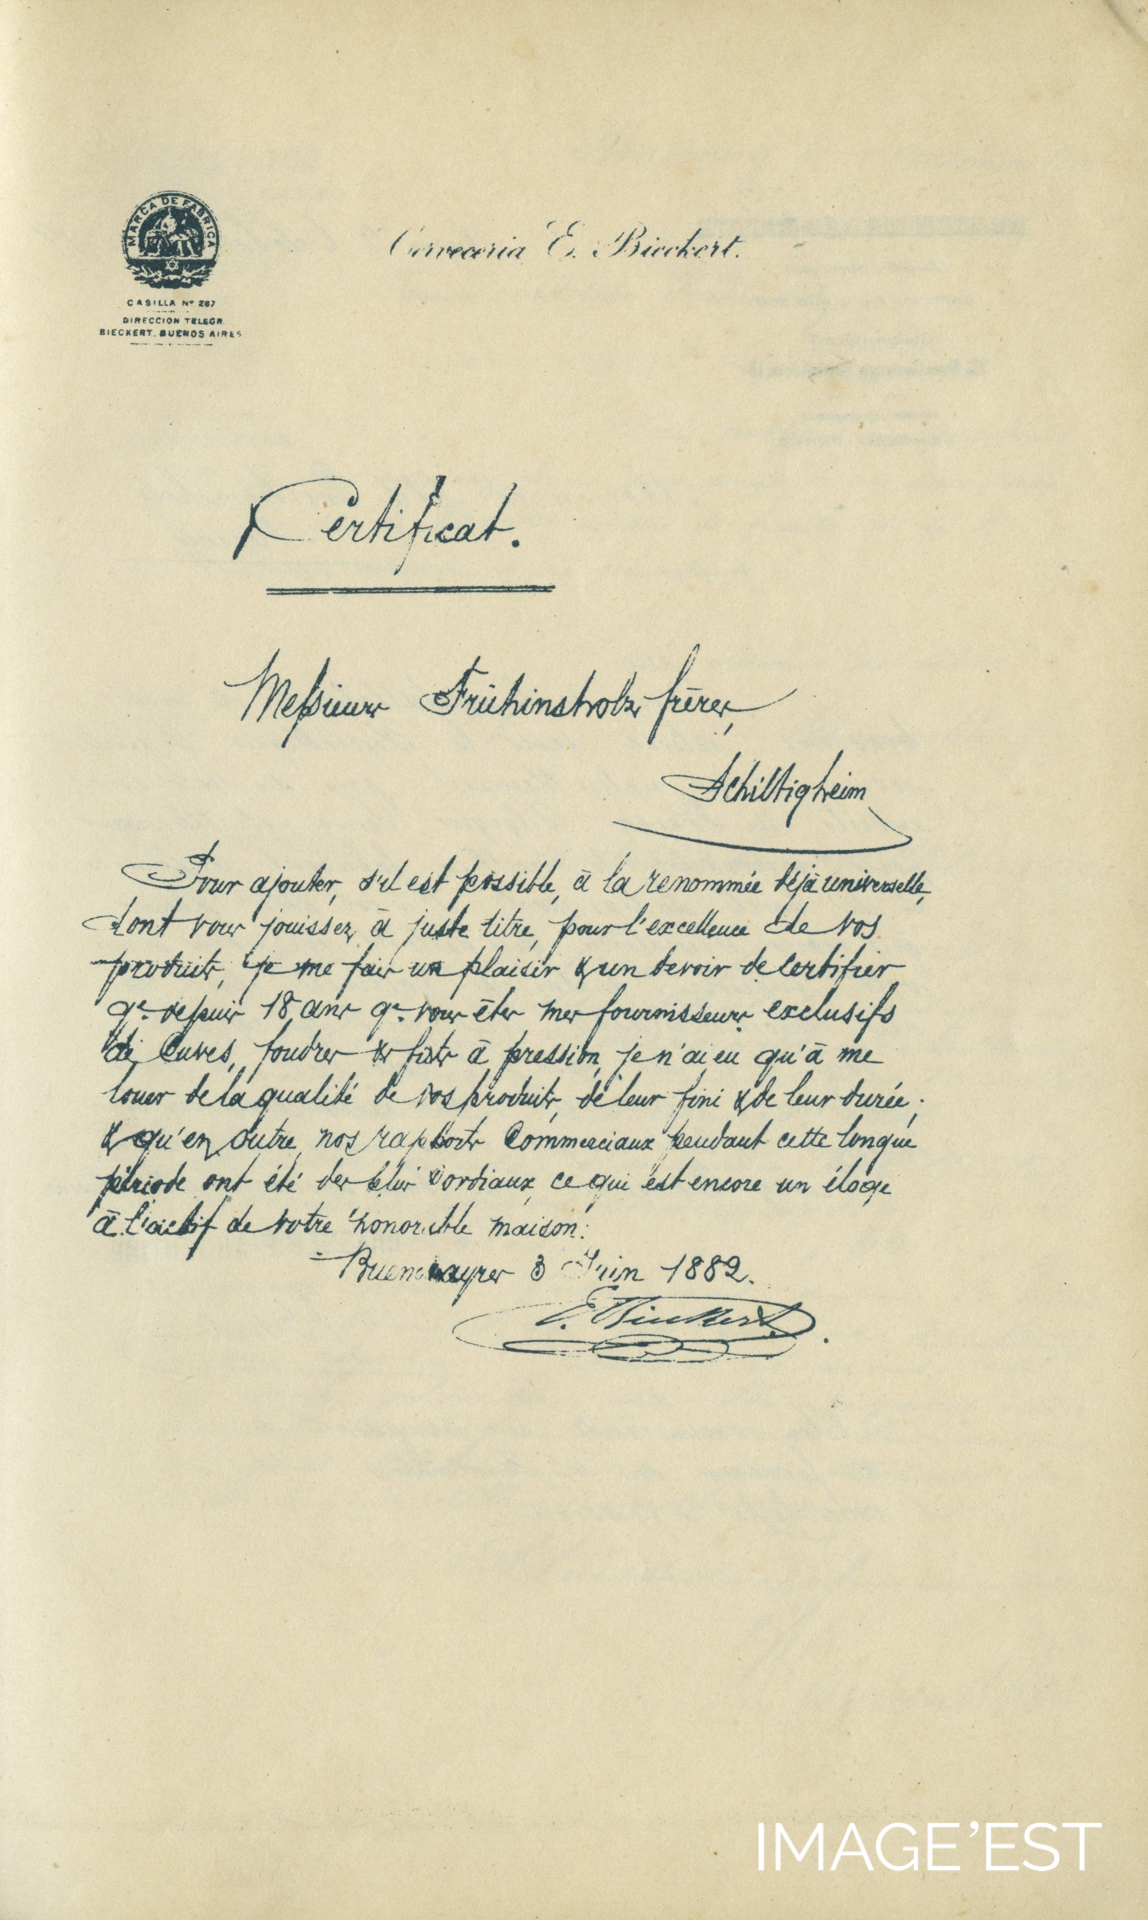 MARCA DE FABRICA
CASILLA Nº 267
DIRECCION TELEGR.
BIECKERT. BUENOS AIRES
Cerveceria E. Bieckert.
Certificat.
Messieurs Frühinsholz frères,
Schiltigheim
Pour ajouter, s'il est possible, à la renommée déjà universelle,
dont vous jouissez à juste titre, pour l'excellence de vos
produits, je me fais un plaisir & un devoir de certifier
qe. depuis 18 ans qe. vous êtes mes fournisseurs exclusifs
de Cuves, foudres & fûts à pression, je n'ai eu qu'à me
louer de la qualité de vos produits, de leur fini & de leur durée;
& qu'en outre, nos rapports Commerciaux pendant cette longue
période ont été des plus Cordiaux, ce qui est encore un éloge
à l'actif de votre honorable maison.
Buenosayres 3 Juin 1882.
E. Bieckert.
IMAGE'EST